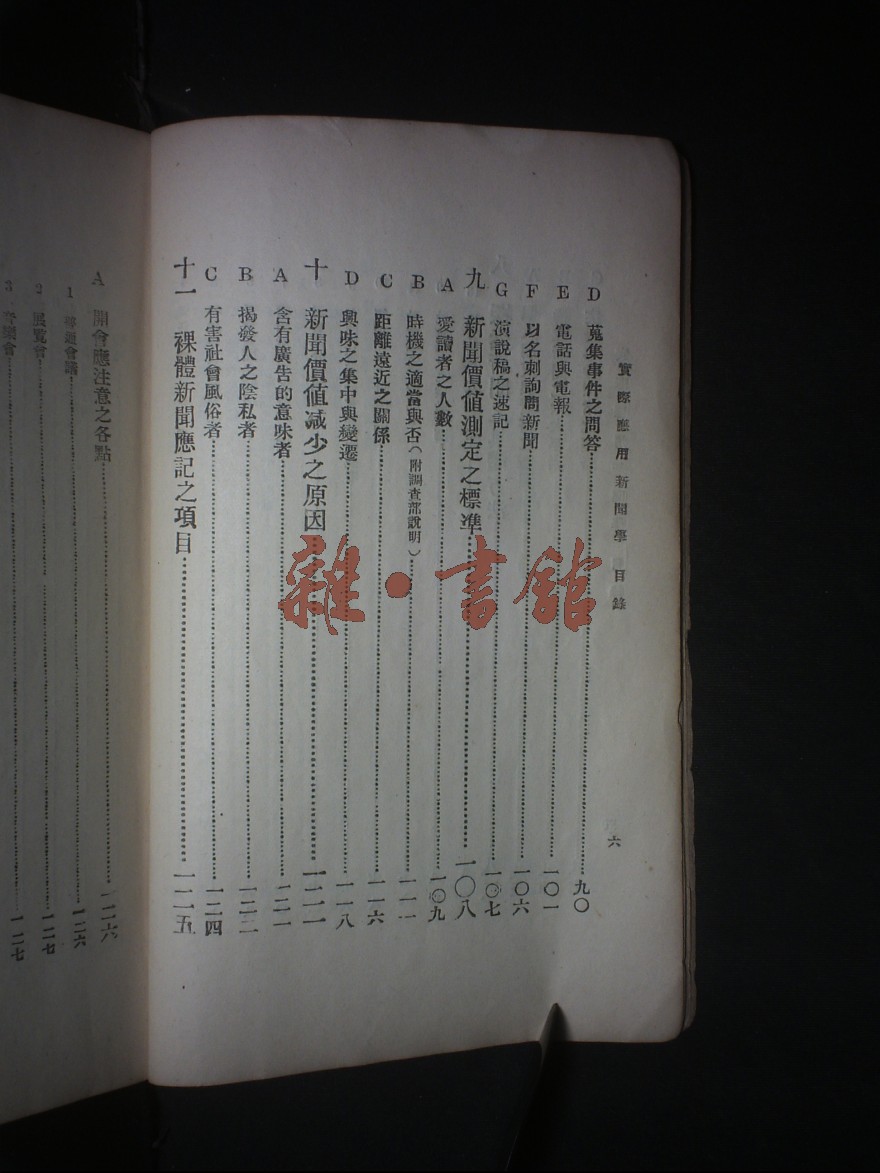 實際應用新聞學 目錄
六
D 蒐集事件之問答……九〇
E 電話與電報……一〇一
F 以名刺詢問新聞……一〇六
G 演說稿之速記……一〇七
九 新聞價值測定之標準……一〇八
A 愛讀者之人數……一〇九
B 時機之適當與否(附調查部說明)……一一一
C 距離遠近之關係……一一六
D 興味之集中與變遷……一一八
十 新聞價值減少之原因……一二一
A 含有廣告的意味者……一二一
B 揭發人之陰私者……一二二
C 有害社會風俗者……一二四
十一 裸體新聞應記之項目……一二五
A 開會應注意之各點……一二六
1 普通會議……一二六
2 展覽會……一二七
3 音樂會……一二七
雜·書館